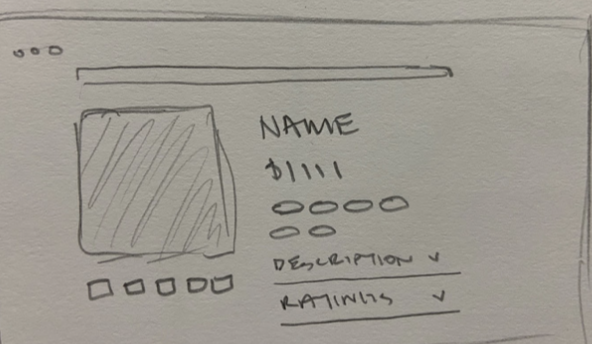 NAME
$1111
DESCRIPTION v
RATINGS v